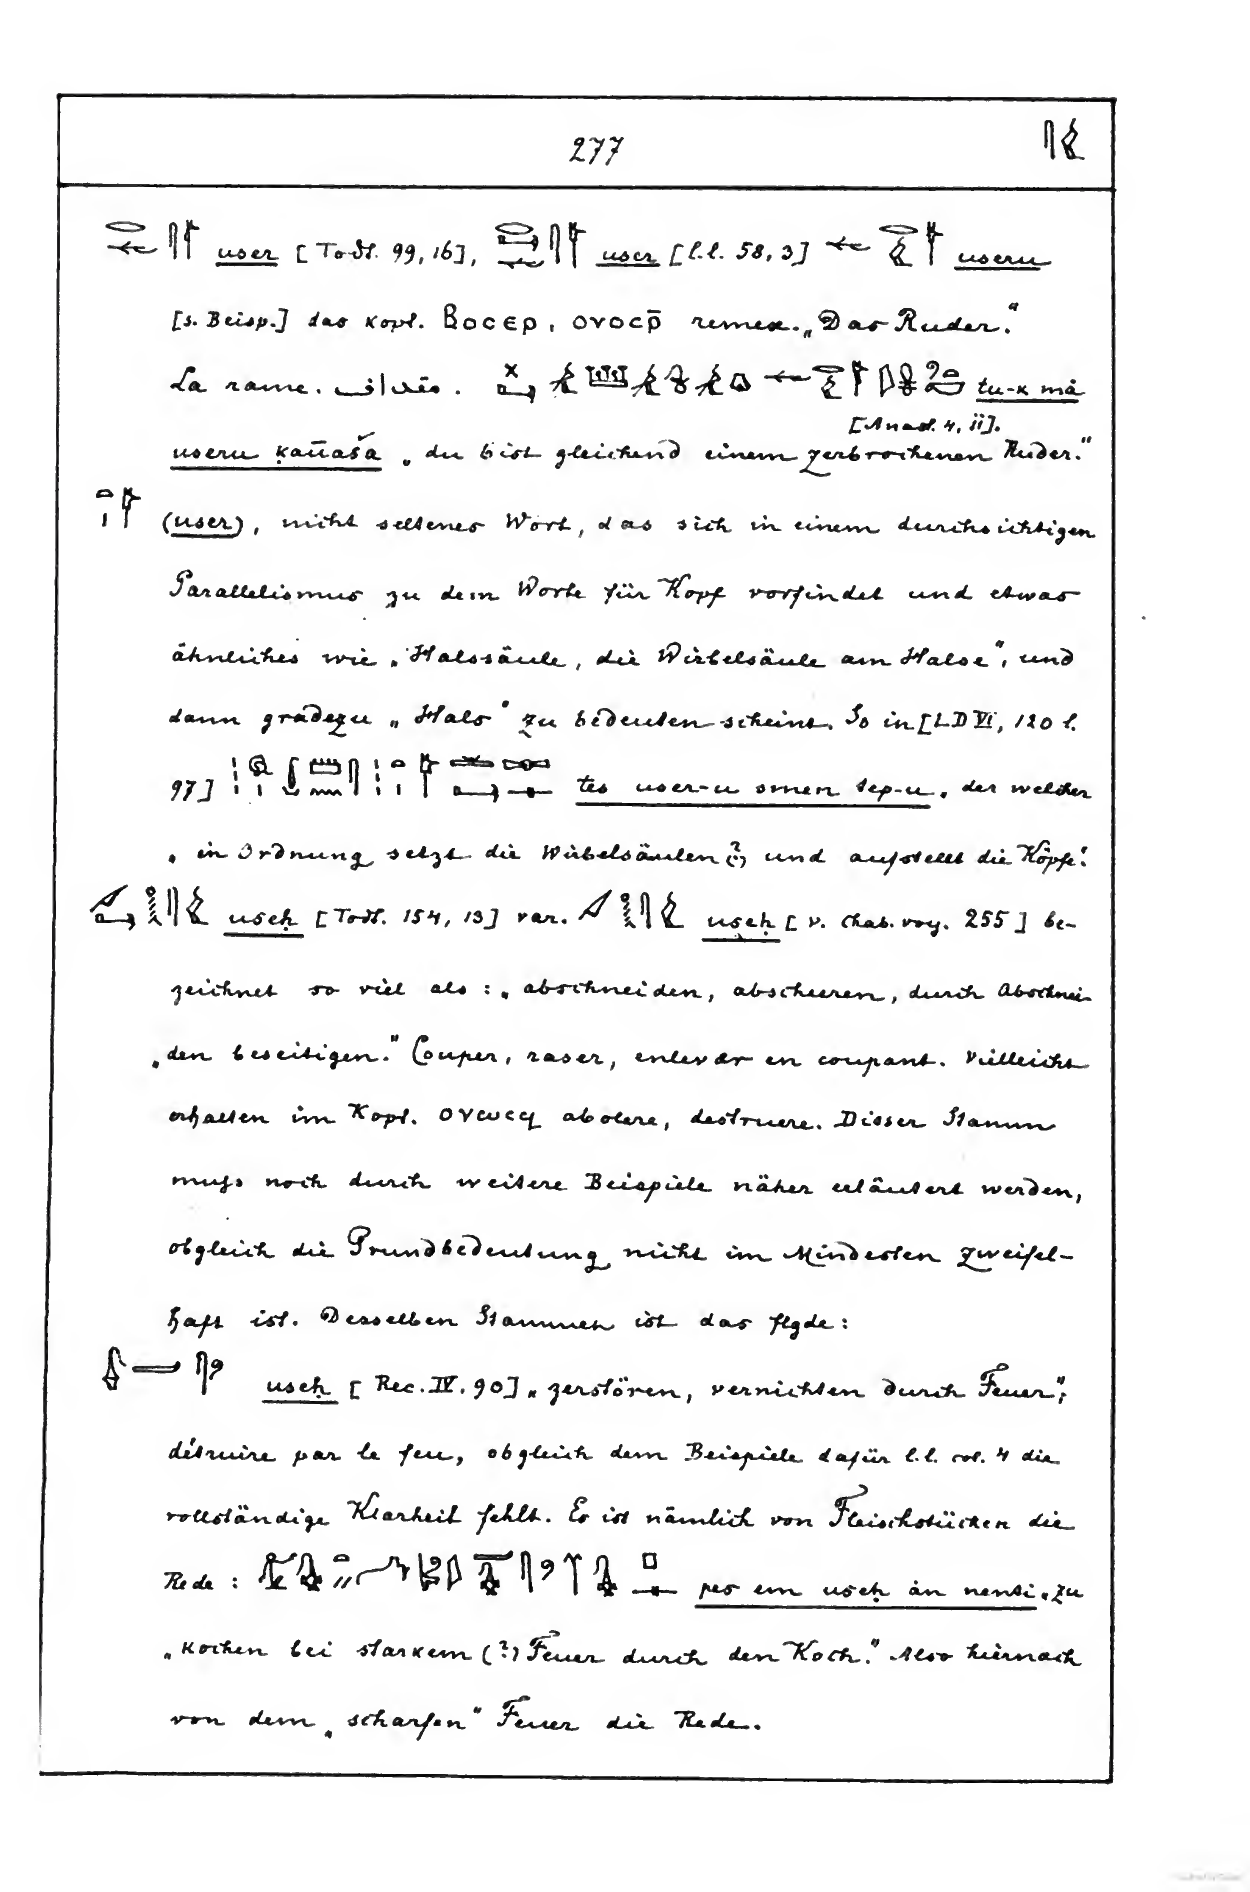 277
user [Todt. 99, 16], user [l.l. 58, 3] useru
[s. Beisp.] das kopt. ⲃⲟⲥⲉⲣ, ⲟⲩⲟⲥⲣ̄ remex. „Das Ruder.“
La rame. مقداف. tu-k må
[Anast. 4, ii].
useru ḳaūaša „du bist gleichend einem zerbrochenen Ruder.“
(user), nicht seltenes Wort, das sich in einem durchsichtigen
Parallelismus zu dem Worte für Kopf vorfindet und etwas
ähnliches wie „Halssäule, die Wirbelsäule am Halse“, und
dann gradezu „Hals“ zu bedeuten scheint. So in [LD VI, 120 l.
97] tes user-u smen tep-u „der welcher
„in Ordnung setzt die Wirbelsäulen (?) und aufstellt die Köpfe.“
useḥ [Todt. 154, 13] var. useḥ [v. Chab. voy. 255] be-
zeichnet so viel als: „abschneiden, abscheeren, durch Abschnei-
„den beseitigen.“ Couper, raser, enlever en coupant. Vielleicht
erhalten im Kopt. ⲟⲩⲱⲥϥ abolere, destruere. Dieser Stamm
muſs noch durch weitere Beispiele näher erläutert werden,
obgleich die Grundbedeutung nicht im Mindesten zweifel-
haft ist. Desselben Stammes ist das flgde:
useḥ [Rec. IV. 90] „zerstören, vernichten durch Feuer“,
détruire par le feu, obgleich dem Beispiele dafür l.l. col. 4 die
vollständige Klarheit fehlt. Es ist nämlich von Fleischstücken die
Rede: pes em useḥ ån nenti „zu
„kochen bei starkem (?) Feuer durch den Koch.“ Also hiernach
von dem „scharfen“ Feuer die Rede.